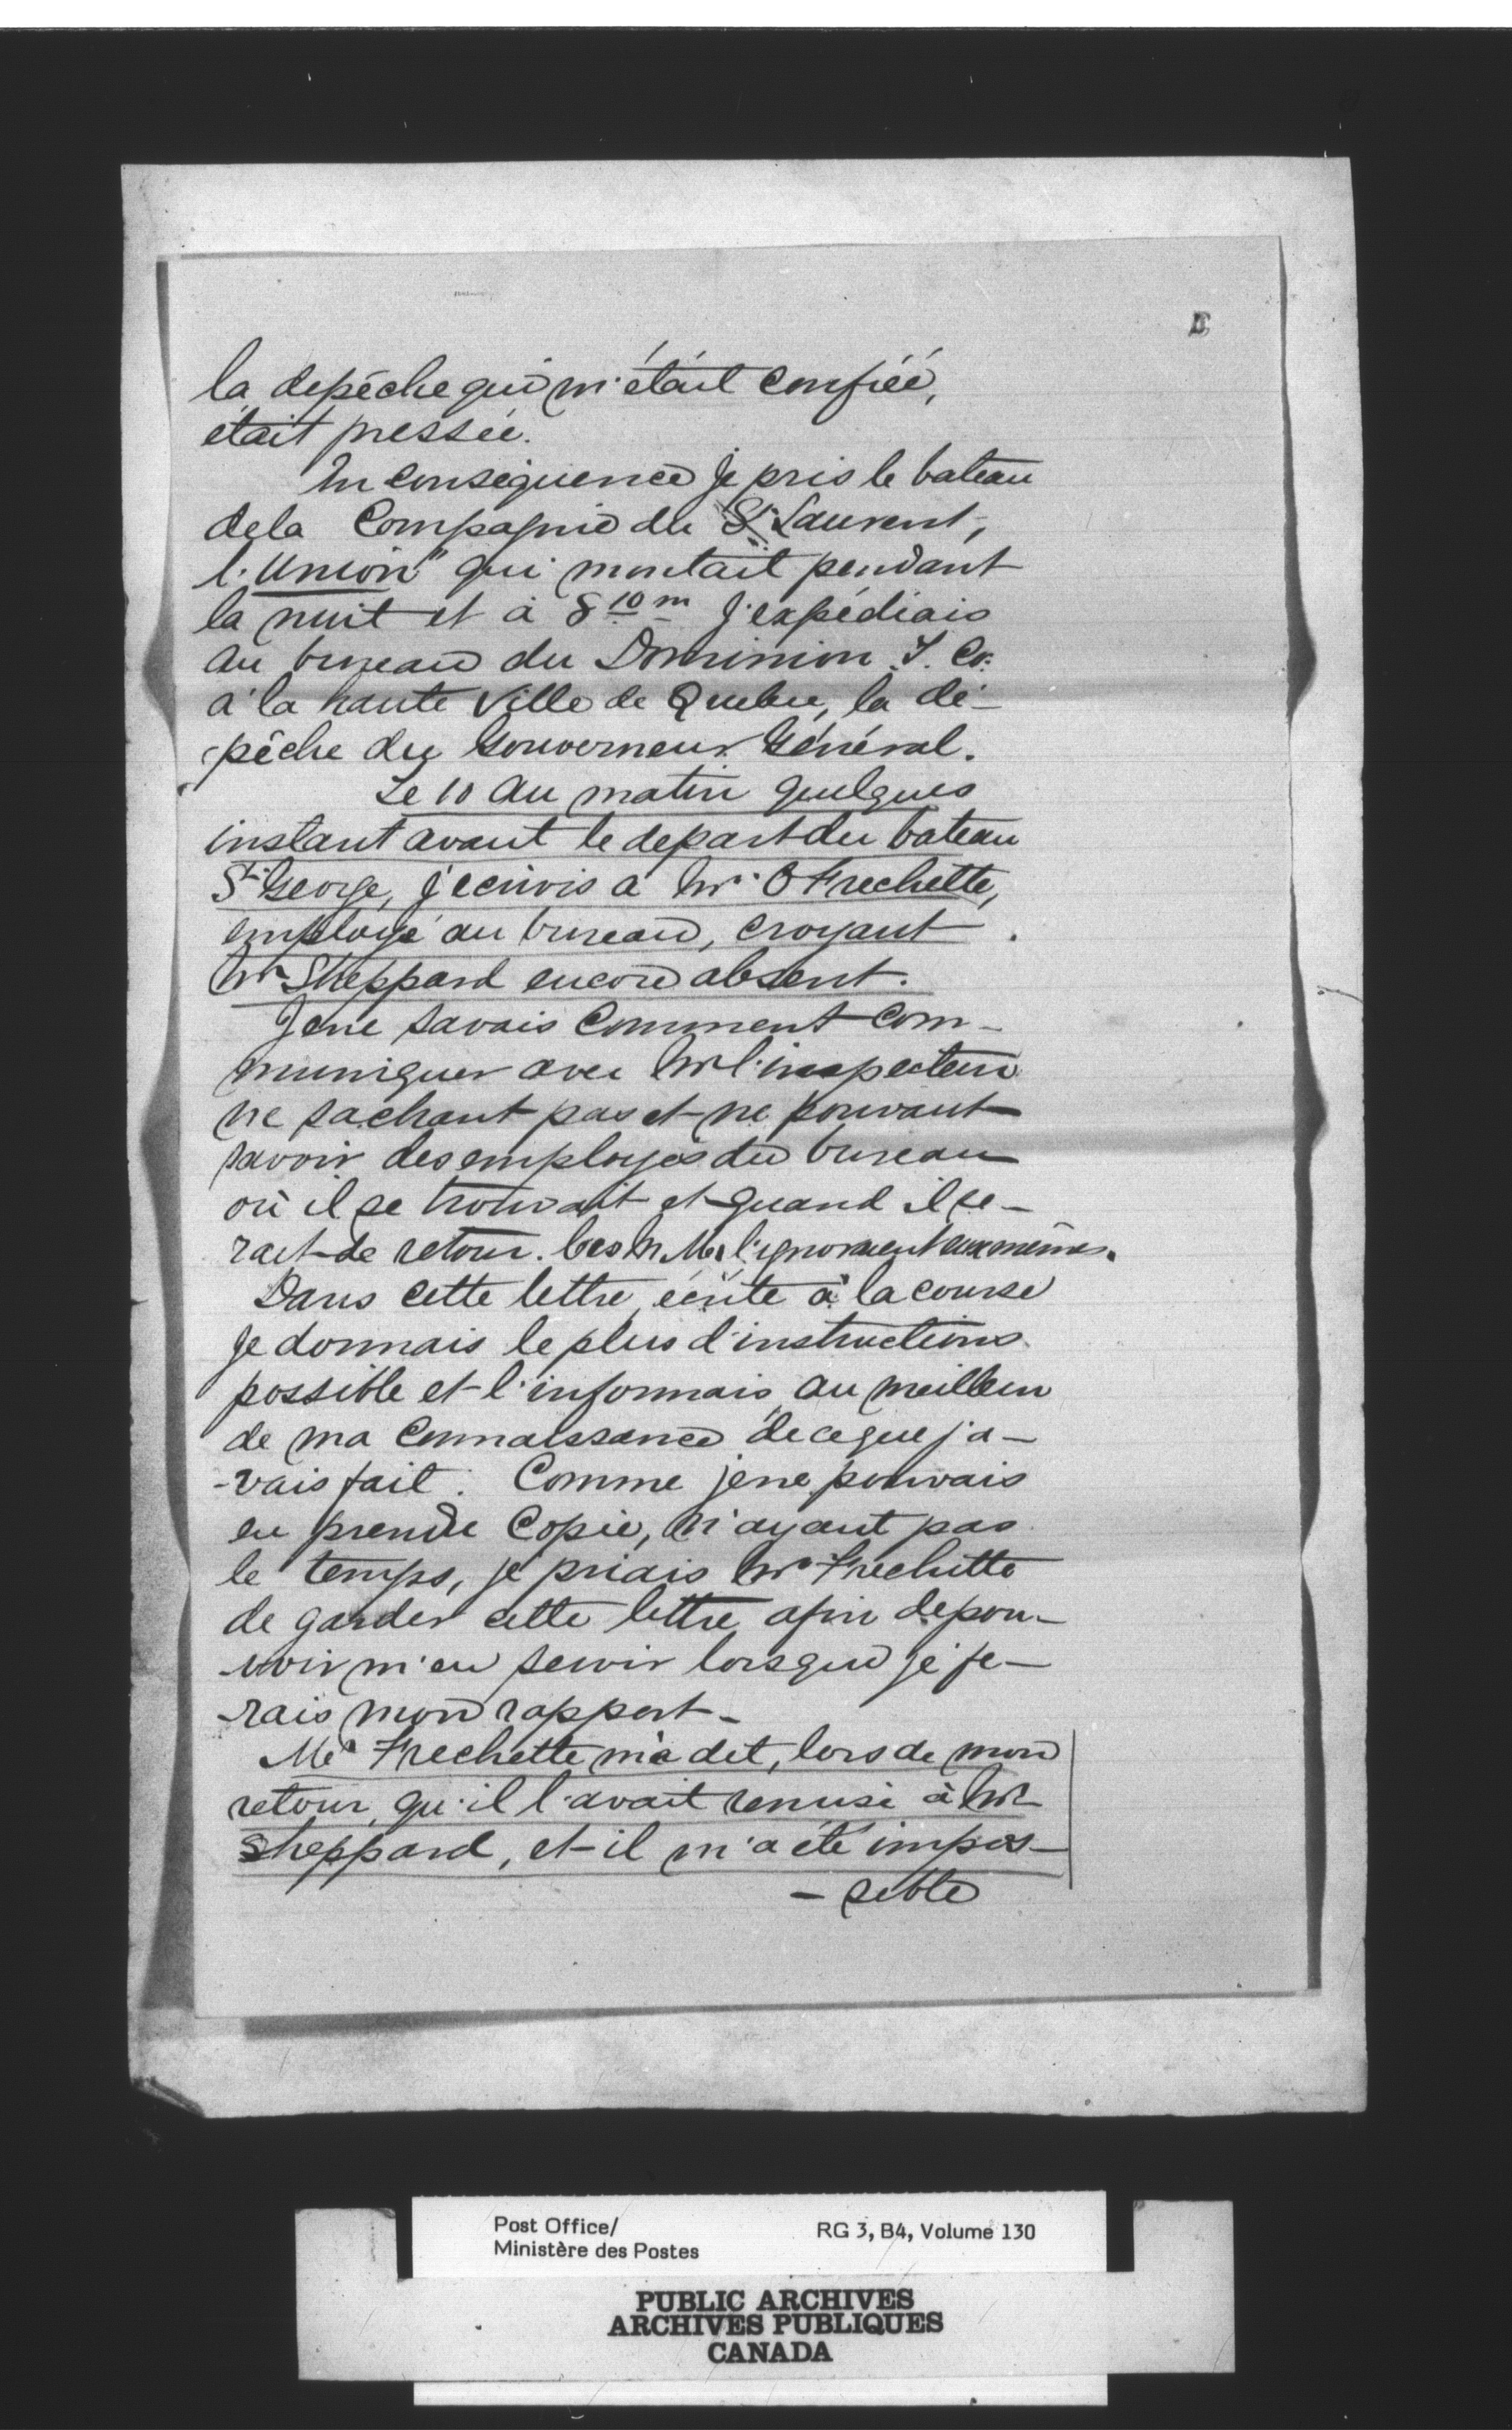 la depéche qui m'était confiéé,
était pressée.
En conséquence je pris le bateau
dela Compagnie du St Laurent,
l'Union" qui montait pendant
la nuit et à 8 10 m j'expédiais
au bureau du Dominion T. Co.
à la haute Ville de Quebec, la dé-
pêche du Gouverneur Général.
Le 10 au matin quelques
instant avant le depart du bateau
St George, j'écrivis à Mr O Frechette,
employé au bureau, croyant
Mr Sheppard encore absent.
Je ne savais comment com-
muniquer avec Mr l'inspecteur
ne sachant pas et ne pouvant
savoir des employés du bureau
où il se trouvait et quand il se-
rait de retour. Ces M Mrs l'ignoraient eux mêmes.
Dans cette lettre, écrite à la course
je donnais le plus d'instructions
possible et l'informais au meilleur
de ma connaissance de ce que j'a-
-vais fait. Comme je ne pouvais
en prendre Copie, n'ayant pas
le temps, je priais Mr Frechette
de garder cette lettre afin de pou-
-voir m'en servir lorsque je fe-
-rais mon rapport-
Mr Frechette m'a dit, lors de mon
retour, qu'il l'avait remise à Mr
Sheppard, et il m'a été impos-
-sible
Post Office/ RG 3, B4, Volume 130
Ministère des Postes
PUBLIC ARCHIVES
ARCHIVES PUBLIQUES
CANADA